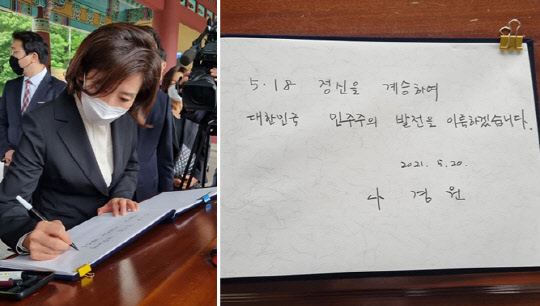 5·18 정신을 계승하여
대한민국 민주주의 발전을 이룩하겠습니다.
2021. 5. 20.
나 경 원